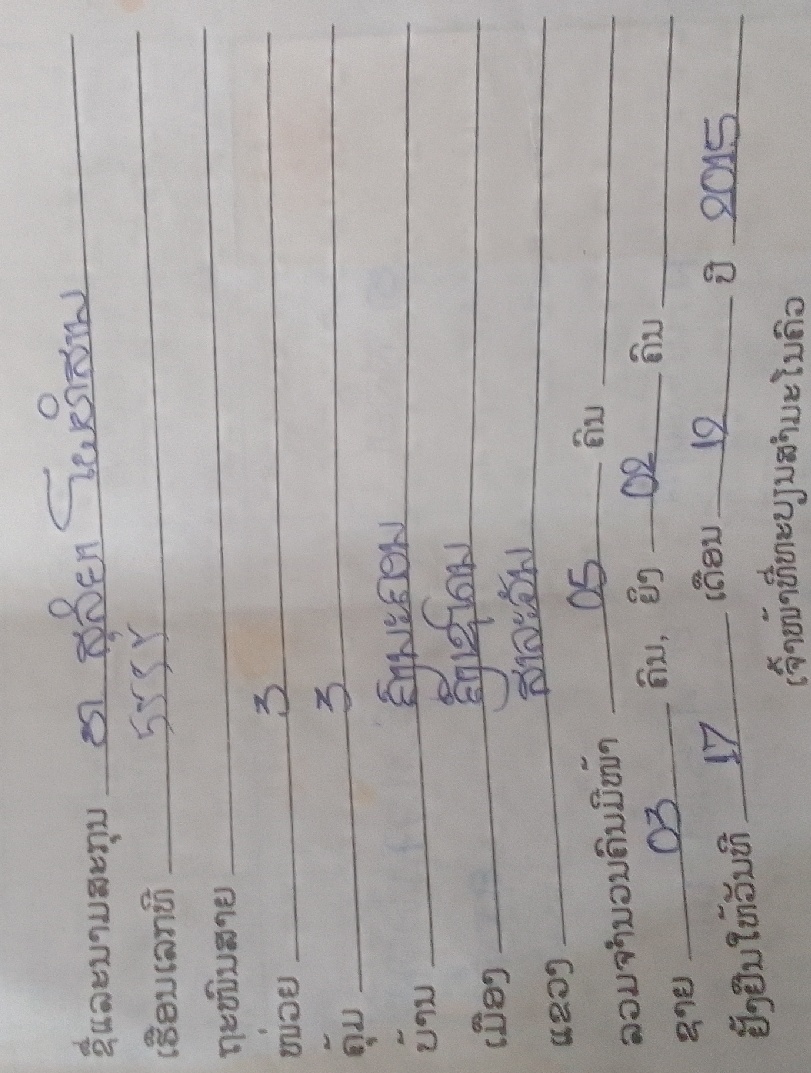 ຊື່ແລະນາມສະກຸນ ທ. ສຸລິຍາ
ເຮືອນເລກທີ
ຖະໜົນສາຍ
ໜ່ວຍ 3
ຄຸ້ມ 3
ບ້ານ
ເມືອງ
ແຂວງ ສາລະວັນ
ລວມຈຳນວນຄົນມີໜ້າ 05 ຄົນ
ຊາຍ 03 ຄົນ, ຍິງ 02 ຄົນ
ຢັ້ງຢືນໃຫ້ວັນທີ 17 ເດືອນ 12 ປີ 2015
ເຈົ້າໜ້າທີ່ທະບຽນສຳມະໂນຄົວ